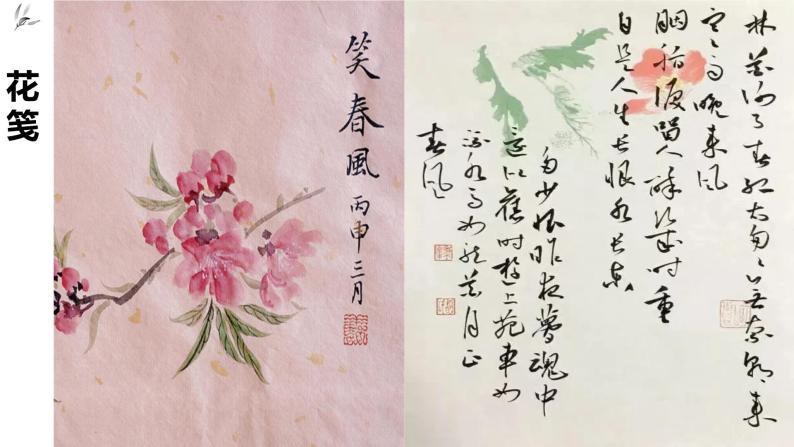 花笺
笑春風
丙申三月
林花谢了春红太匆匆无奈朝来
寒雨晚来风
胭脂泪留人醉几时重
自是人生长恨水长东
多少恨昨夜夢魂中
还似舊时游上苑车如
流水马如龙花月正
春风